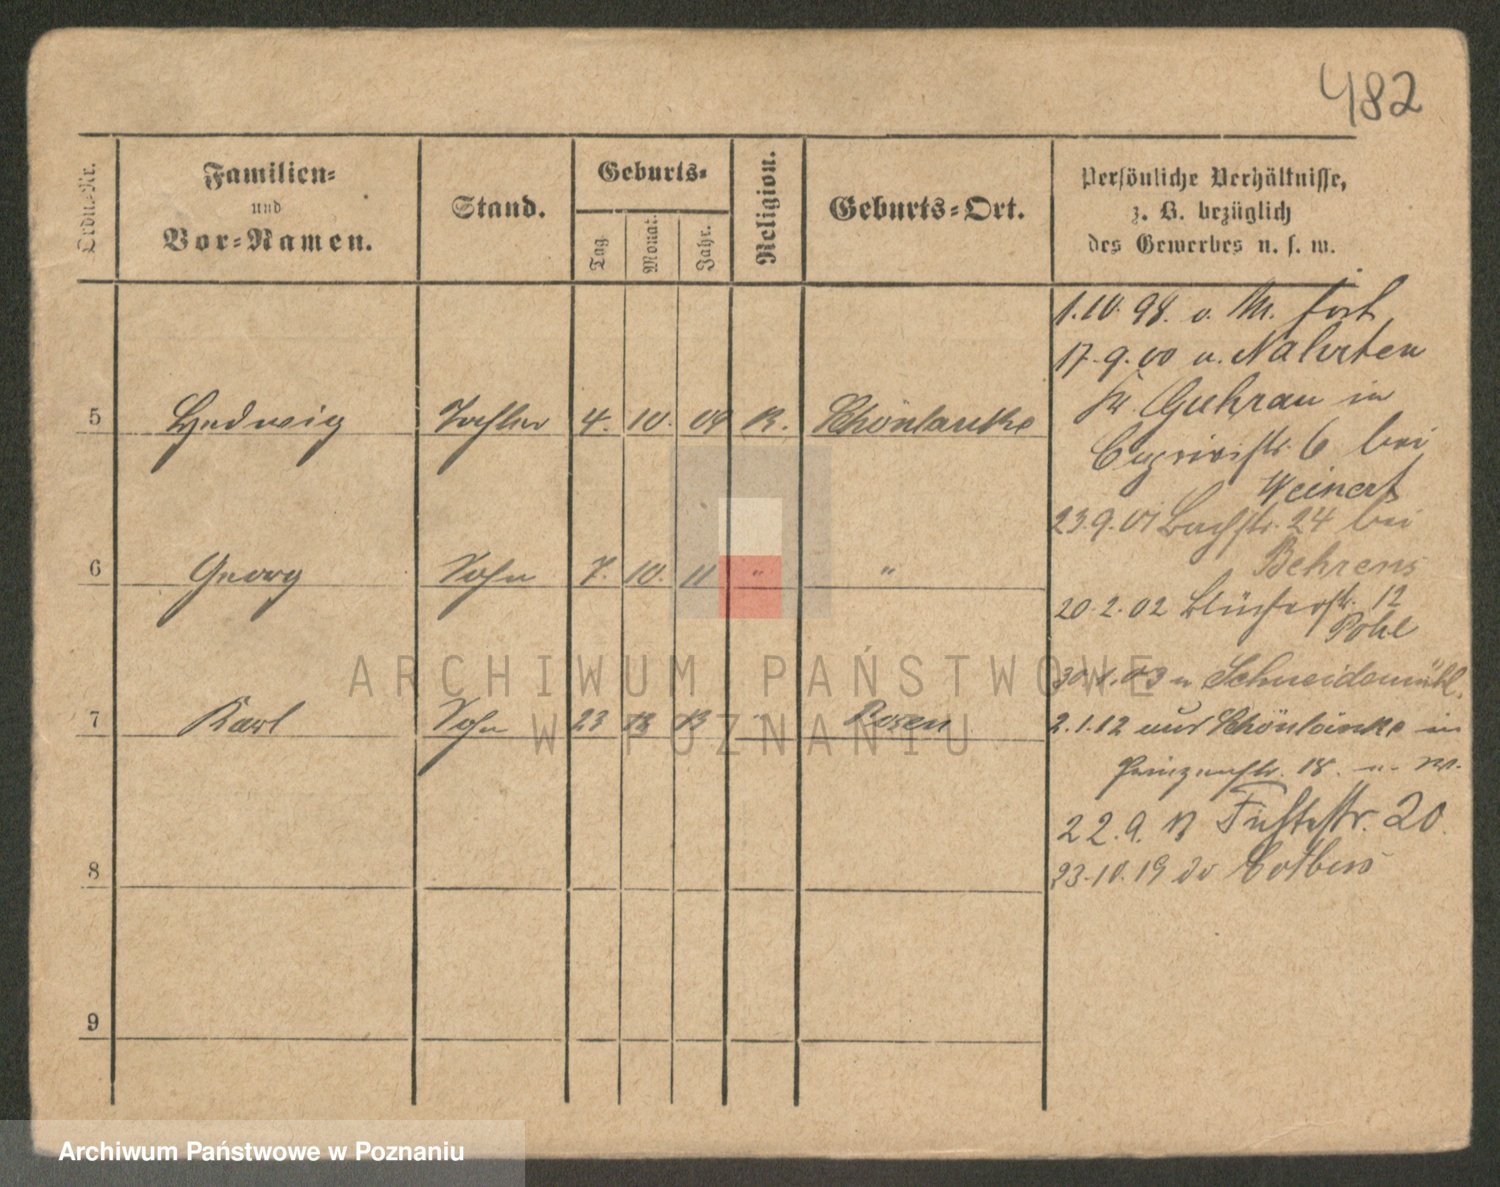 482
Ordn.-Nr.
Familien-
und
Vor-Namen.
Stand.
Geburts-
Tag
Monat.
Jahr.
Religion.
Geburts-Ort.
Persönliche Verhältnisse,
z. B. bezüglich
des Gewerbes u. s. w.
5 Hedwig Tochter 4. 10. 09 K. Schönlanke
6 Georg Sohn 7. 10. 11 " "
7 Karl Sohn 23 13 " Posen
8
9
1.10.98. v. fort
17.9.00 a. Nahrten
Kr. Guhrau in
6 bei
Weinert
23.9.01 Bachstr. 24 bei
Behrens
20.2.02 Blücherstr. 12
Pohl
30.1.03 n Schneidemühl.
2.1.12 aus Schönlanke in
Prinzenstr. 18.
22.9. 20
23.10.19
ARCHIWUM PAŃSTWOWE
W POZNANIU
Archiwum Państwowe w Poznaniu